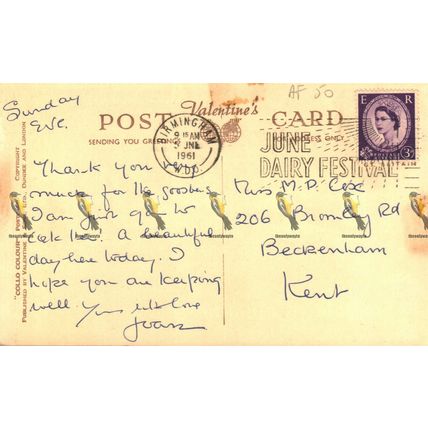 AF 50
Sunday
Eve.
POST Valentine's CARD
SENDING YOU GREETINGS
ADDRESS ONLY
E R
3D
BIRMINGHAM
9 15 AM
JNE
1961
JUNE
DAIRY FESTIVAL
"COLLO COLOUR" POST CARD COPYRIGHT
PUBLISHED BY VALENTINE & SONS, LTD., DUNDEE AND LONDON
Thank you
much for the
I am just
a beautiful
day here today. I
hope you are keeping
well. Yours with love
Joan
Miss M. P. Cox
206 Bromley Rd
Beckenham
Kent